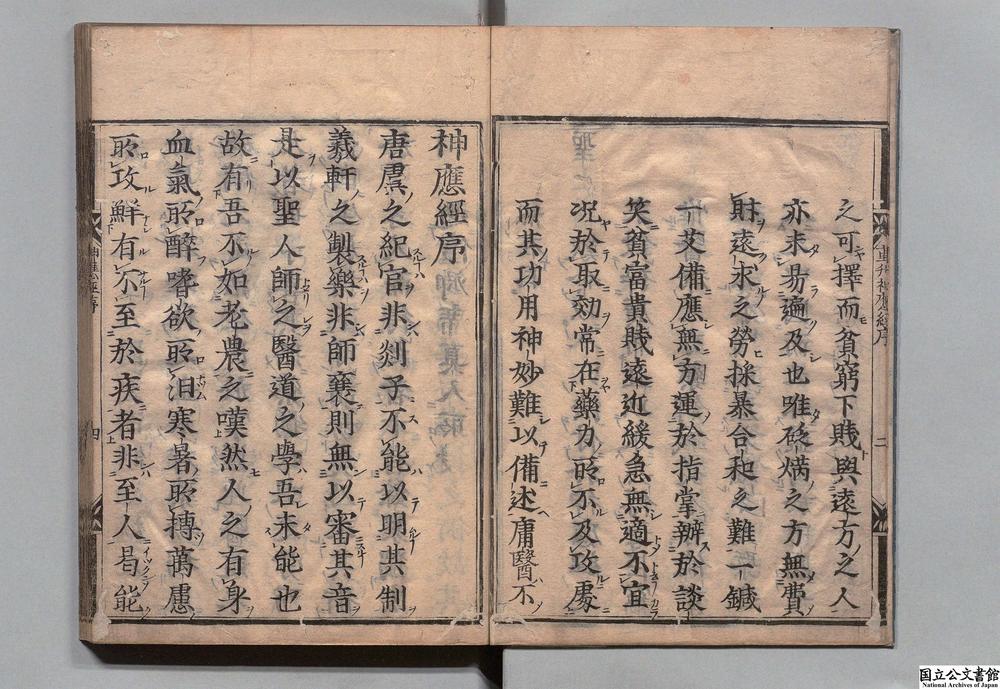 之可擇而貧窮下賎與遠方之人
亦未易遍及也唯砭焫之方無費
財遠求之勞採暴合和之難一鍼
一艾備應無方運於指掌辦於談
笑貧富貴賎遠近緩急無適不宜
况於取効常在藥力所不及攻處
而其功用神妙難以備述庸醫不
神應經序
唐虞之紀官非剡子不能以明其制
羲軒之製樂非師襄則無以審其音
是以聖人師之醫道之學吾未能也
故有吾不如老農之嘆然人之有身
血氣所醉嗜欲所汨寒暑所摶萬慮
所攻鮮有不至於疾者非至人曷能
重刊神應經序
二
神應經序
四
国立公文書館
National Archives of Japan